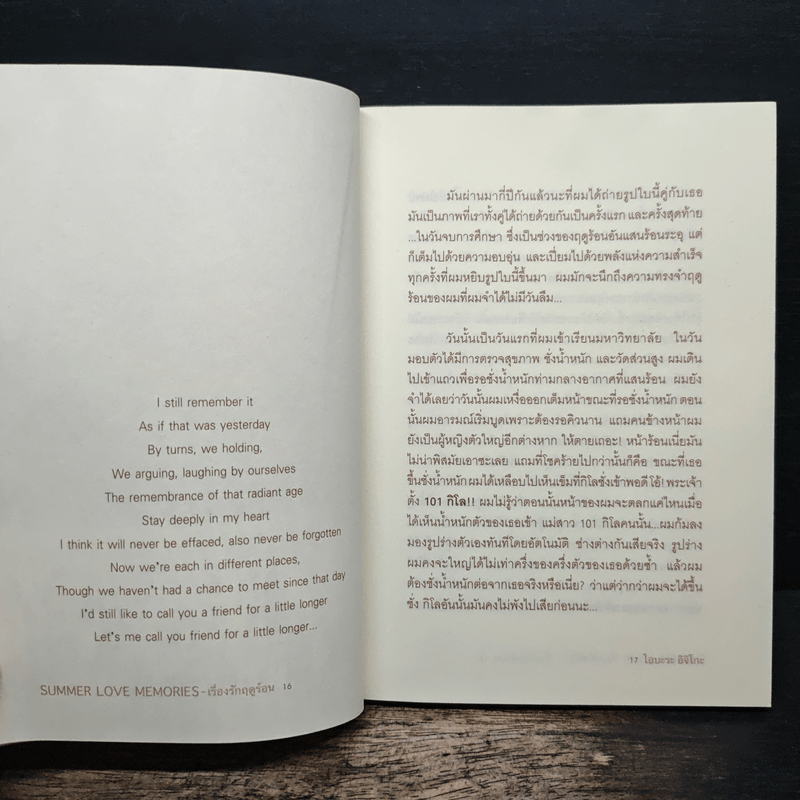 I still remember it
As if that was yesterday
By turns, we holding,
We arguing, laughing by ourselves
The remembrance of that radiant age
Stay deeply in my heart
I think it will never be effaced, also never be forgotten
Now we're each in different places,
Though we haven't had a chance to meet since that day
I'd still like to call you a friend for a little longer
Let's me call you friend for a little longer...
SUMMER LOVE MEMORIES - เรื่องรักฤดูร้อน 16
มันผ่านมากี่ปีกันแล้วนะที่ผมได้ถ่ายรูปใบนี้คู่กับเธอ
มันเป็นภาพที่เราทั้งคู่ได้ถ่ายด้วยกันเป็นครั้งแรก และครั้งสุดท้าย
...ในวันจบการศึกษา ซึ่งเป็นช่วงของฤดูร้อนอันแสนร้อนระอุ แต่
ก็เต็มไปด้วยความอบอุ่น และเปี่ยมไปด้วยพลังแห่งความสำเร็จ
ทุกครั้งที่ผมหยิบรูปใบนี้ขึ้นมา ผมมักจะนึกถึงความทรงจำฤดู
ร้อนของผมที่ผมจำได้ไม่มีวันลืม...
วันนั้นเป็นวันแรกที่ผมเข้าเรียนมหาวิทยาลัย ในวัน
มอบตัวได้มีการตรวจสุขภาพ ชั่งน้ำหนัก และวัดส่วนสูง ผมเดิน
ไปเข้าแถวเพื่อรอชั่งน้ำหนักท่ามกลางอากาศที่แสนร้อน ผมยัง
จำได้เลยว่าวันนั้นผมเหงื่อออกเต็มหน้าขณะที่รอชั่งน้ำหนัก ตอน
นั้นผมอารมณ์เริ่มบูดเพราะต้องรอคิวนาน แถมคนข้างหน้าผม
ยังเป็นผู้หญิงตัวใหญ่อีกต่างหาก ให้ตายเถอะ! หน้าร้อนเนี่ยมัน
ไม่น่าพิสมัยเอาซะเลย แถมที่โชคร้ายไปกว่านั้นก็คือ ขณะที่เธอ
ขึ้นชั่งน้ำหนัก ผมได้เหลือบไปเห็นเข็มที่กิโลชั่งเข้าพอดี โอ้! พระเจ้า
ตั้ง 101 กิโล!! ผมไม่รู้ว่าตอนนั้นหน้าของผมจะตลกแค่ไหนเมื่อ
ได้เห็นน้ำหนักตัวของเธอเข้า แม่สาว 101 กิโลคนนั้น...ผมก้มลง
มองรูปร่างตัวเองทันทีโดยอัตโนมัติ ช่างต่างกันเสียจริง รูปร่าง
ผมคงจะใหญ่ได้ไม่เท่าครึ่งของครึ่งตัวของเธอด้วยซ้ำ แล้วผม
ต้องชั่งน้ำหนักต่อจากเธอจริงหรือเนี่ย? ว่าแต่ว่ากว่าผมจะได้ขึ้น
ชั่ง กิโลอันนั้นมันคงไม่พังไปเสียก่อนนะ...
17 โอบะระ อิจิโกะ